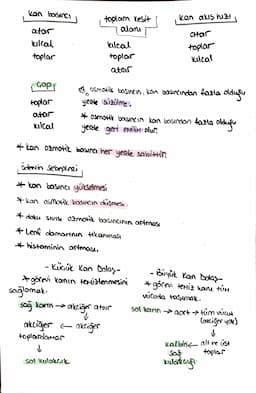 kan basıncı
atar
kılcal
toplar
toplam kesit
alanı
kılcal
toplar
atar
kan akış hızı
atar
toplar
kılcal
çap
toplar
atar
kılcal
osmotik basıncın, kan basıncından fazla olduğu
yerde süzülme.
* osmotik basıncın kan basıncından fazla olduğu
yerde geri emilim olur.
* kan osmotik basıncı her yerde sabittir.
ödemin sebepleri
* kan basıncı yükselmesi
* kan osmotik basıncın düşmesi
* doku sıvısı ozmotik basıncının artması
* Lenf damarının tıkanması
* histaminin artması.
- Küçük Kan Dolaş -
* görevi kanın temizlenmesini
sağlamak.
sağ karın → akciğer atar
akciğer ← akciğer
toplardamar
↓
sol kulakçık
- Büyük Kan Dolaş -
* görevi temiz kanı tüm
vücuda taşımak.
sol karın → aort → tüm vücut
(akciğer yok)
↓
kalbin ← alt ve üst
sağ toplar
kulakçığı